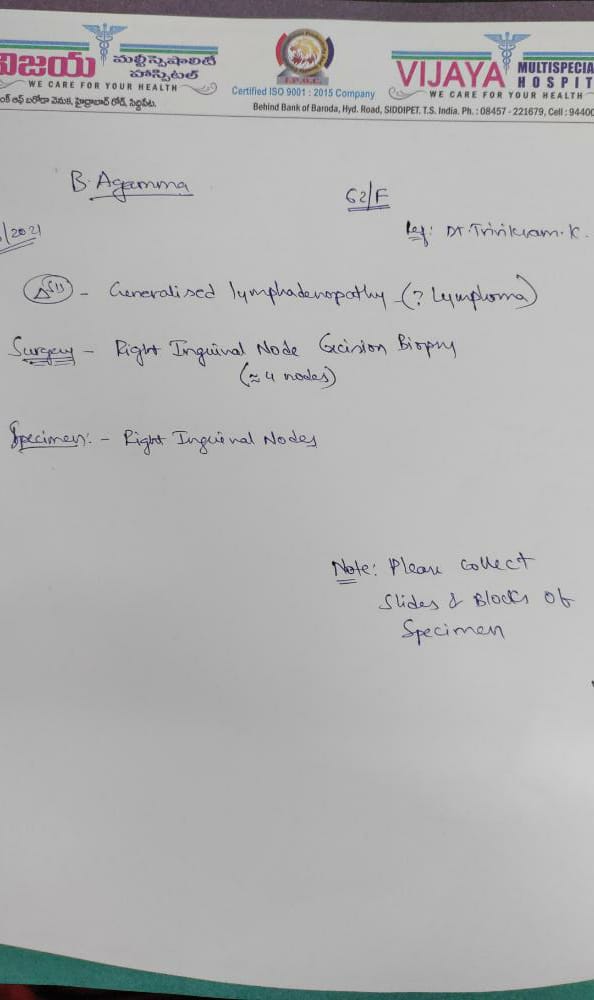 విజయ మల్టీస్పెషాలిటీ హాస్పిటల్
WE CARE FOR YOUR HEALTH
బ్యాంక్ ఆఫ్ బరోడా వెనుక, హైద్రాబాద్ రోడ్, సిద్దిపేట.
Certified ISO 9001 : 2015 Company
VIJAYA MULTISPECIAL HOSPIT
WE CARE FOR YOUR HEALTH
Behind Bank of Baroda, Hyd. Road, SIDDIPET. T.S. India. Ph. : 08457 - 221679, Cell : 9440
B. Agamma 62/F
/2021
Ref: Dr. Trivikram. K.
Δsis - Generalised lymphadenopathy - (? Lymphoma)
Surgery - Right Inguinal Node Excision Biopsy
(≈ 4 nodes)
Specimen: - Right Inguinal Nodes
Note: Please collect
Slides & Blocks of
Specimen